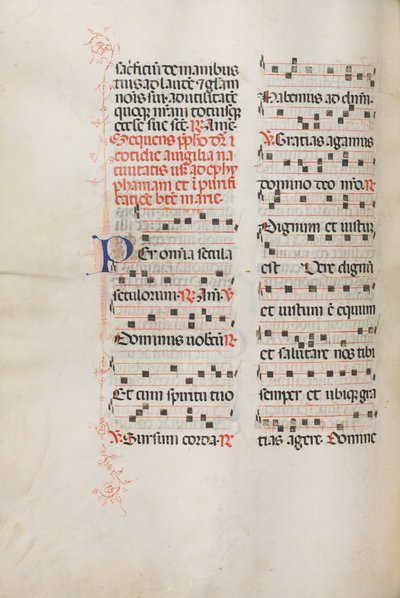 sacficiū de manibus
tuis ad laudē ⁊ glām
nois sui. ad utilitatē
quoque nr̄am totiusque
ecclesie sue scē. ℟. Ame.
Sequens p̄pho dr̄ i
cotidie a uigilia na
tiuitatis usque ad epyphy
phaniam et i purifi
catiōe btē marie.
Per omia secula
seculorum. ℟. Am. ℣
Dominus uobcū ℟
Et cum spiritu tuo
℣ Sursum corda. ℟
Habemus ad dnm.
℣. Gratias agamus
domino deo nro. ℟
Dignum et iustum
est Vere dignū
et iustum ē equum
et salutare nos tibi
semper et ubique gra
tias agere. Domine